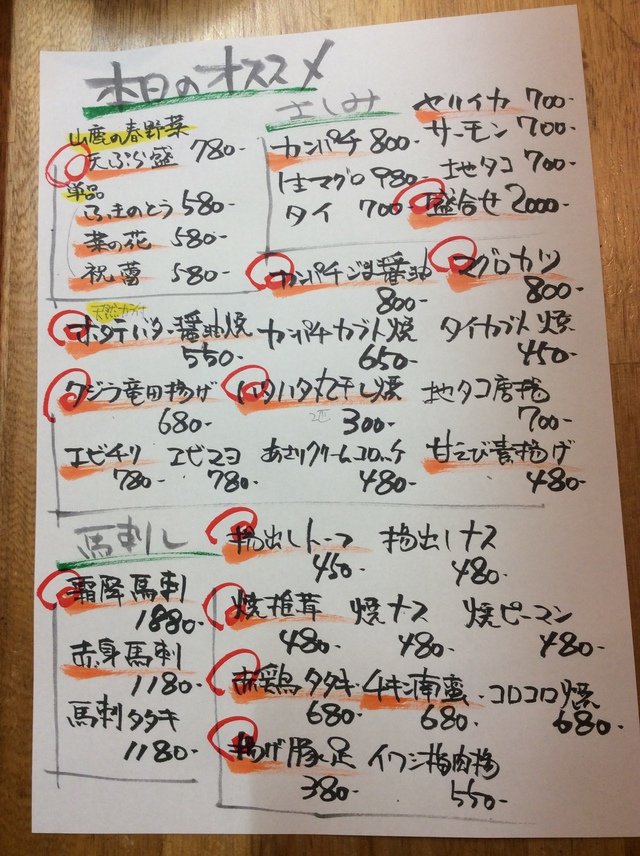 本日のオススメ
山鹿の春野菜
天ぷら盛 780-
単品
ふきのとう 580-
菜の花 580-
祝蕾 580-
さしみ
カンパチ 800-
生マグロ 980-
タイ 700-
ヤリイカ 700-
サーモン 700-
地タコ 700-
盛合せ 2000-
カンパチごま醤油 800-
マグロカツ 800-
ホタテバター醤油焼 550-
カンパチカブト焼 650-
タイカブト焼 450-
クジラ竜田揚げ 680-
ハタハタ丸干し焼 2匹 300-
地タコ唐揚 700-
エビチリ 780-
エビマヨ 780-
あさりクリームコロッケ 480-
甘えび素揚げ 480-
馬刺し
霜降馬刺 1880-
赤身馬刺 1180-
馬刺タタキ 1180-
揚出しトーフ 450-
揚出しナス 480-
焼椎茸 480-
焼ナス 480-
焼ピーマン 480-
赤鶏タタキ 680-
チキン南蛮 680-
コロコロ焼 680-
揚げ豚足 380-
イワシ梅肉揚 550-